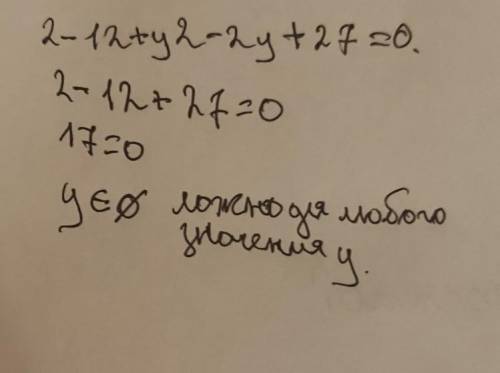 2-12+y2-2y+27=0.
2-12+27=0
17=0
y∈∅ ложно для любого
значения y.